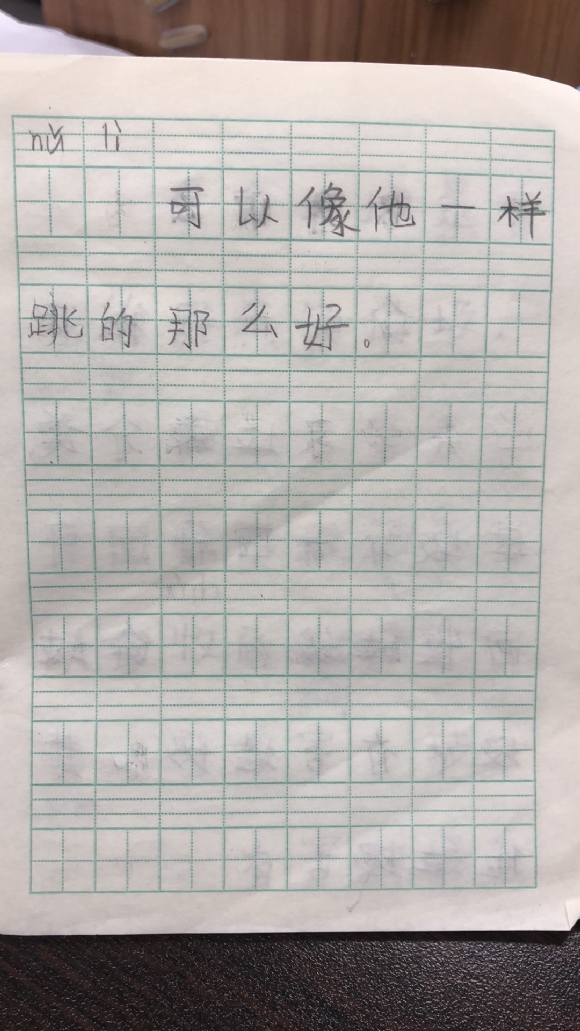 nǔ lì
可以像他一样
跳的那么好。